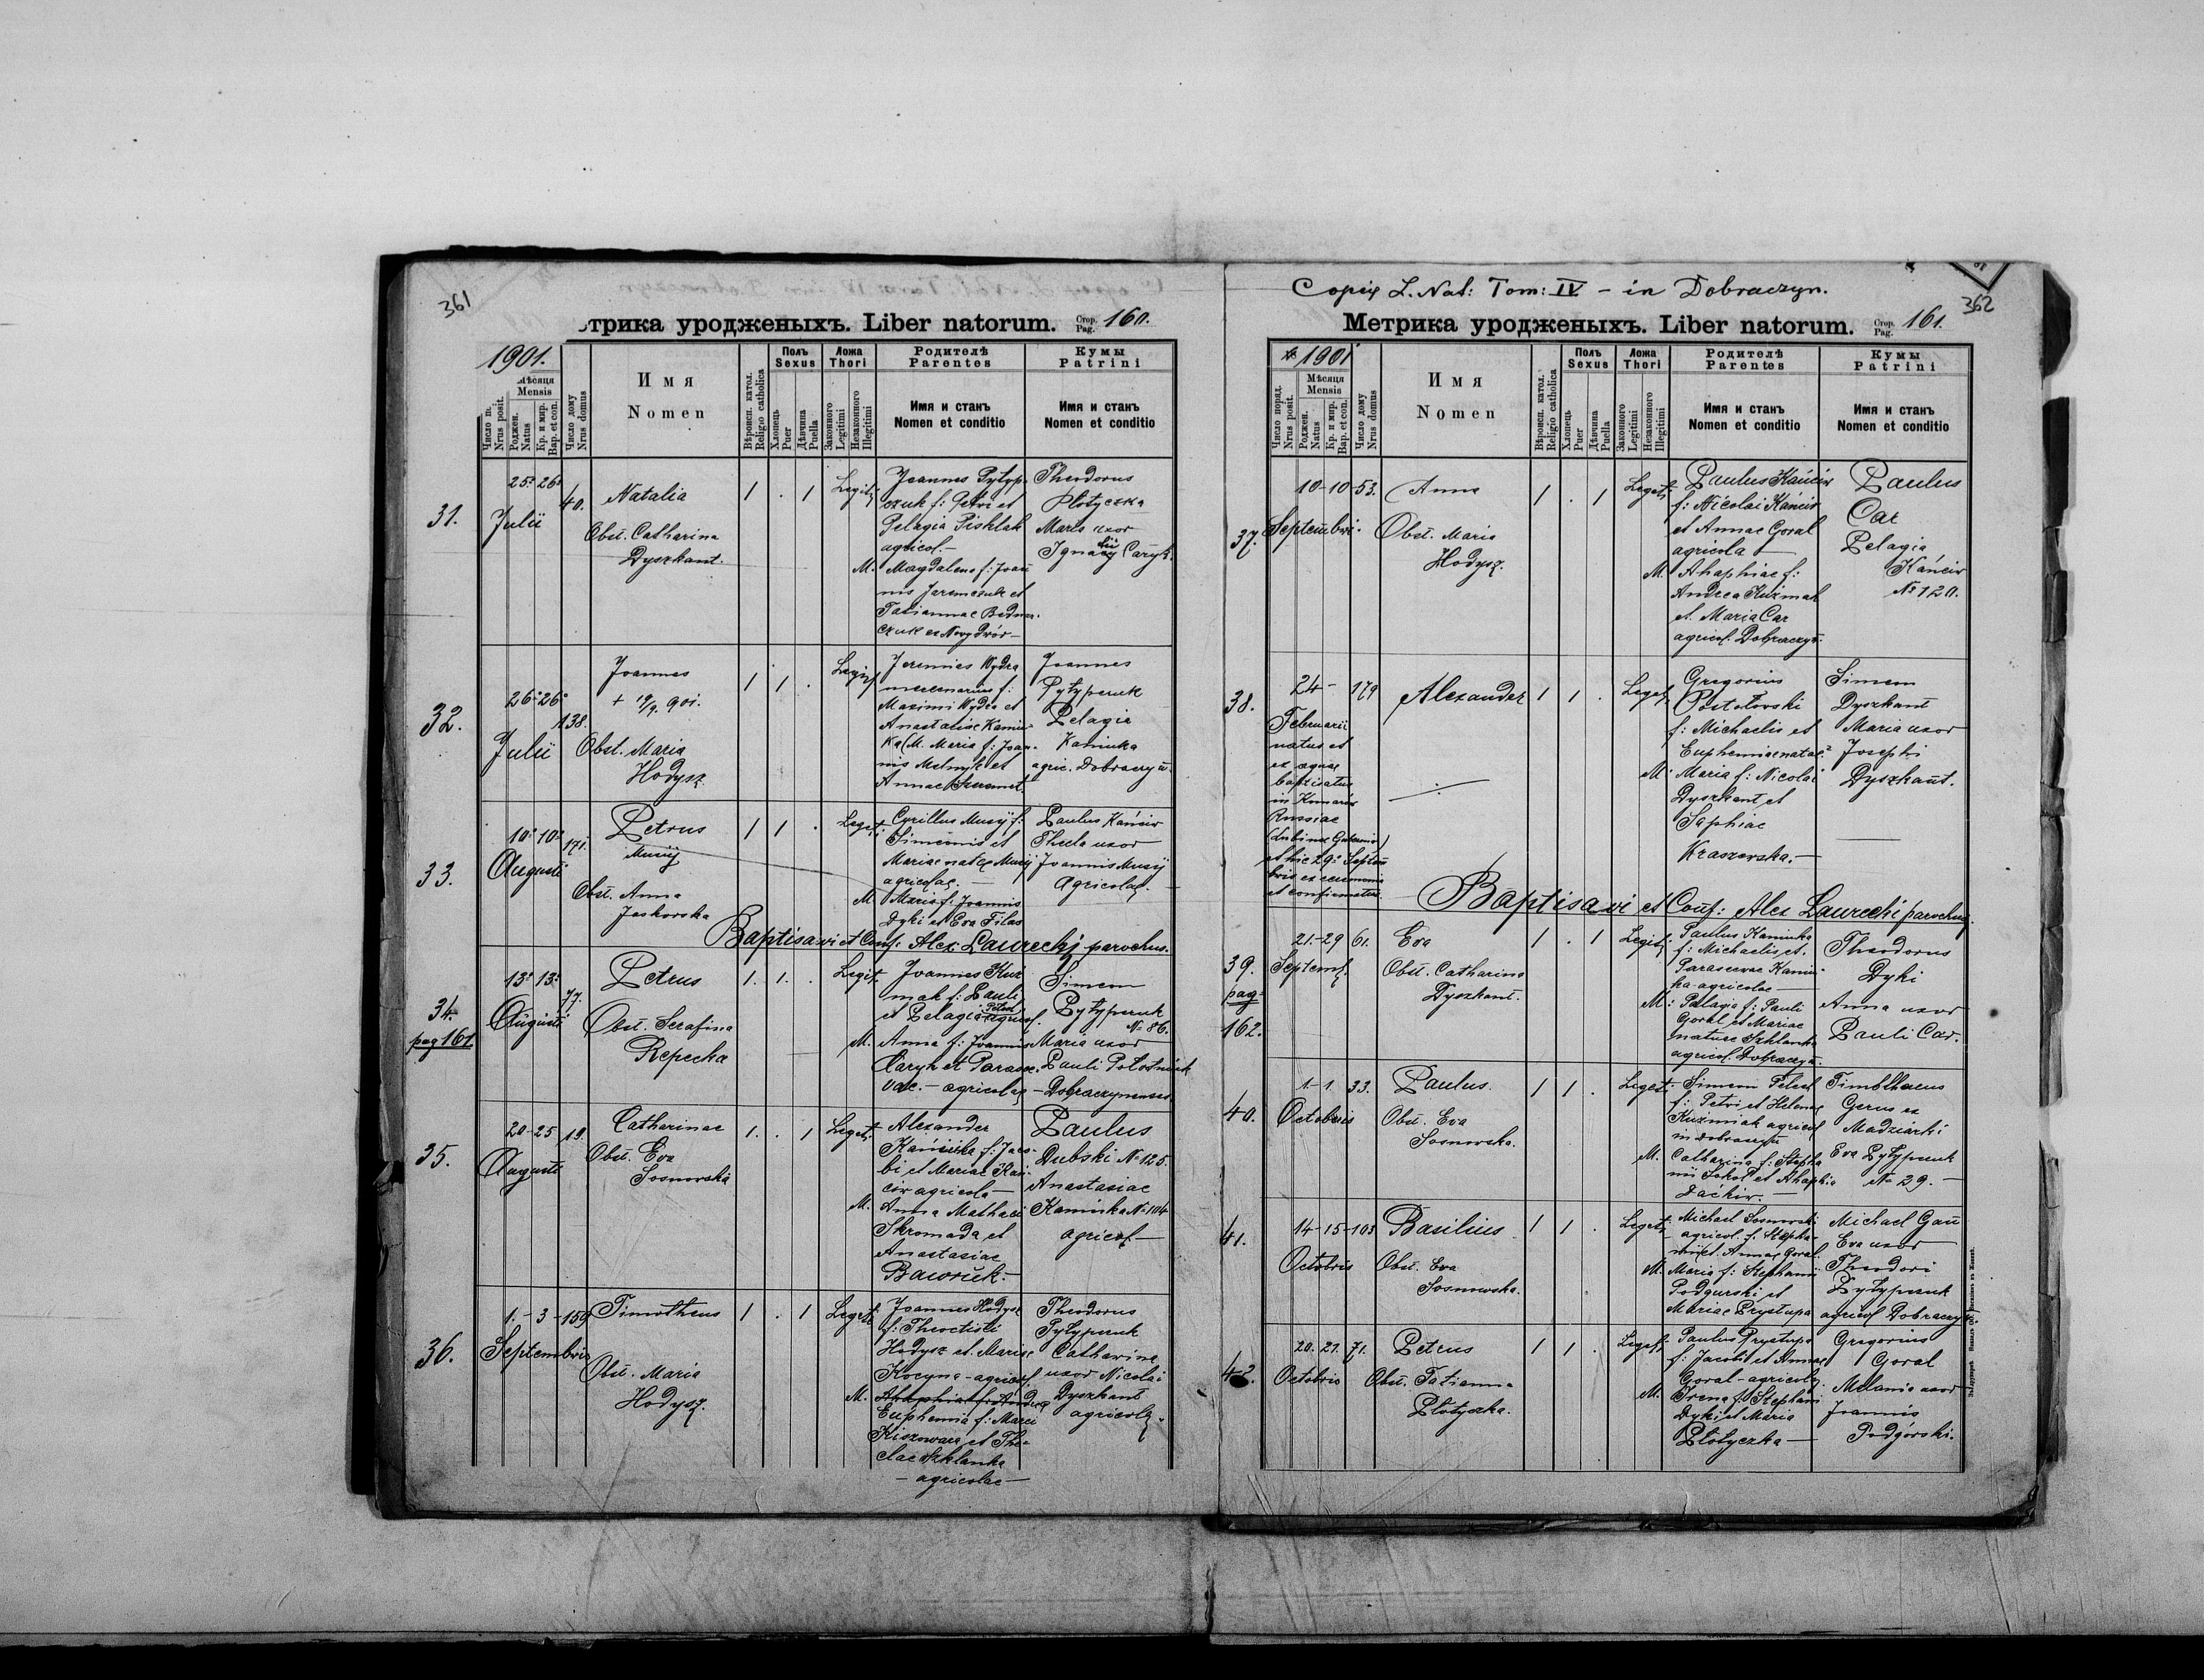 361
трика уродженыхъ. Liber natorum. Стор. Pag. 160.
1901.
Мѣсяця
Mensis
Роджен.
Natus
Кр. и мир.
Bap. et con.
Nrus posit.
Число дому
Nrus domus
Имя
Nomen
Вѣроисп. катол.
Religio catholica
Полъ
Sexus
Хлопець
Puer
Дѣвчина
Puella
Ложа
Thori
Законного
Legitimi
Незаконного
Illegitimi
Родителѣ
Parentes
Имя и станъ
Nomen et conditio
Кумы
Patrini
Имя и станъ
Nomen et conditio
31.
25. 26.
Julii
40.
Natalia
Obst. Catharina
Dyszkant.
1 . 1
Legit.
Joannes Pytyp-
czuk f: Petri et
Pelagia
agricol.-
M. Magdalena f: Joan
nis Jaremczuk et
Tatiannae
czuk ex Nowy Dwór-
Theodorus
Płotyczka
Maria uxor
32.
26. 26.
Julii
138.
Joannes
+ 19/9. 901.
Obst. Maria
Hodysz.
1 1 .
Legit.
Jeremies Wydra
mercenarius f:
Maximi Wydra et
Anastasiae Kamin-
ka M. Maria f: Joan-
nis Melnyk et
Annae
Joannes
Pytypczuk
Pelagia
Kaminka
agric. Dobraczyn.
33.
10. 10.
Augusti
171.
Petrus
Musij
Obst. Anna
Jaskorska
1 1 .
Legit.
Cyrillus Musij f:
Simeonis et
Mariae natae Musij
agricolae. -
M. Maria f: Joannis
Dyki et Eva Filas
Paulus Kańciw
Thecla uxor
Joannis Musij
agricolae.
Baptisavi et Conf: Alex: Laurecki parochus.
34.
pag 161
13. 13.
Augusti
77.
Petrus
Obst. Serafina
Repecka
1. 1. .
Legit.
Joannes Kuź
mak f: Pauli
et Pelagia agricol.
M. Anna f: Joannis
et Parasce-
vae. - agricolae
Simeon
Pytypczuk
№ 86.
Maria uxor
Pauli
- Dobraczynenses
35.
20-25
Augusti
19.
Catharinae
Obst. Eva
Sosnowska
1. . 1
Legit.
Alexander
f: Jaco-
bi et Mariae Kań-
ciw agricola -
M. Anna Mathaei
Skromada et
Anastasiae
Paulus
Dubski № 125.
Anastasiae
Kaminka № 104
agricol -
36.
1. - 3
Septembris
159
Timotheus
Obst. Maria
Hodysz.
1 . 1
Legit.
Joannes Hodysz
f: Theoctisti
Hodysz et Mariae
Kocyna - agricol.
M.
Euphemia f: Marci
Kiszowara et The-
clae Szklanka
- agricolae -
Theodorus
Pytypczuk
Catharina
uxor Nicolai
Dyszkant
agricola.
Copia L. Nat: Tom: IV - in Dobraczyn.
362
Метрика уродженыхъ. Liber natorum. Стор. Pag. 161.
1901
Число поряд.
Nrus posit.
Мѣсяця
Mensis
Роджен.
Natus
Кр. и мир.
Bap. et con.
Число дому
Nrus domus
Имя
Nomen
Вѣроисп. катол.
Religio catholica
Полъ
Sexus
Хлопець
Puer
Дѣвчина
Puella
Ложа
Thori
Законного
Legitimi
Незаконного
Illegitimi
Родителѣ
Parentes
Имя и станъ
Nomen et conditio
Кумы
Patrini
Имя и станъ
Nomen et conditio
37.
10-10
Septembri.
53.
Anna
Obst. Maria
Hodysz.
1 . 1
Legit.
Paulus Kańciw
f: Nicolai Kańciw
et Annae Goral
agricola -
M. Ahaphiae f:
Andrea Kuźmak
et Maria Car
agricol. Dobraczyn.
Paulus
Car
Pelagia
Kańciw
№ 120.
38.
24 -
Februarii
natus et
ex aqua
baptisatus
in Komarów
Russiae
et hic 29. Septem
bris ex ceremonia
et confirmatus.
179
Alexander
1 1 .
Legit.
Gregorius
Postołowski
f: Michaelis et
Euphemiae natae
M. Maria f: Nicolai
Dyszkant et
Saphiae
Kraszewska. -
Simeon
Dyszkant
Maria uxor
Josephi
Dyszkant.
Baptisavi et Conf: Alex Laurecki parochus.
39.
pag-
162.
21.-29
Septem.
61.
Eva
Obst. Catharina
Dyszkant.
1 . 1
Legit.
Paulus Kaminka
f: Michaelis et.
Parascevae Kamin-
ka - agricolae -
M: Pelagia f: Pauli
Goral et Mariae
natae Szklanka
agricol. Dobraczyn.
Theodorus
Dyki
Anna uxor
Pauli Car.
40.
1.-1.
Octobris
33.
Paulus.
Obst. Eva
Sosnowska.
1 1 .
Legit.
Simeon
f: Petri et Helenae
Kuźmiak agricol
in Dobraczyn
M. Catharina f: Stepha
nii Sokol et Ahaphia
Daćkiw. -
Timotheus
Gerus ex
Madziarki
Eva Pytypczuk
№ 29. -
41.
14-15
Octobris
103
Basilius
Obst. Eva
Sosnowska.
1 1 .
Legit.
Michael Sosnowski
- agricol. f. Stepha-
nii et. Annae Goral.
M. Maria f: Stephanii
Podgurski et
Mariae Prystupa
Michael Gan
Eva uxor
Theodori
Pytypczuk
agricol Dobraczyn.
42.
20. 21.
Octobris
71.
Petrus
Obst. Tatianna
Płotyczka.
1 1 .
Legit.
Paulus Prystupa
f: Jacobi et Annae
Goral - agricola.
M. Irena f: Stephani
Dyki et Maria
Płotyczka -
Gregorius
Goral
Melania uxor
Joannis
Podgórski.